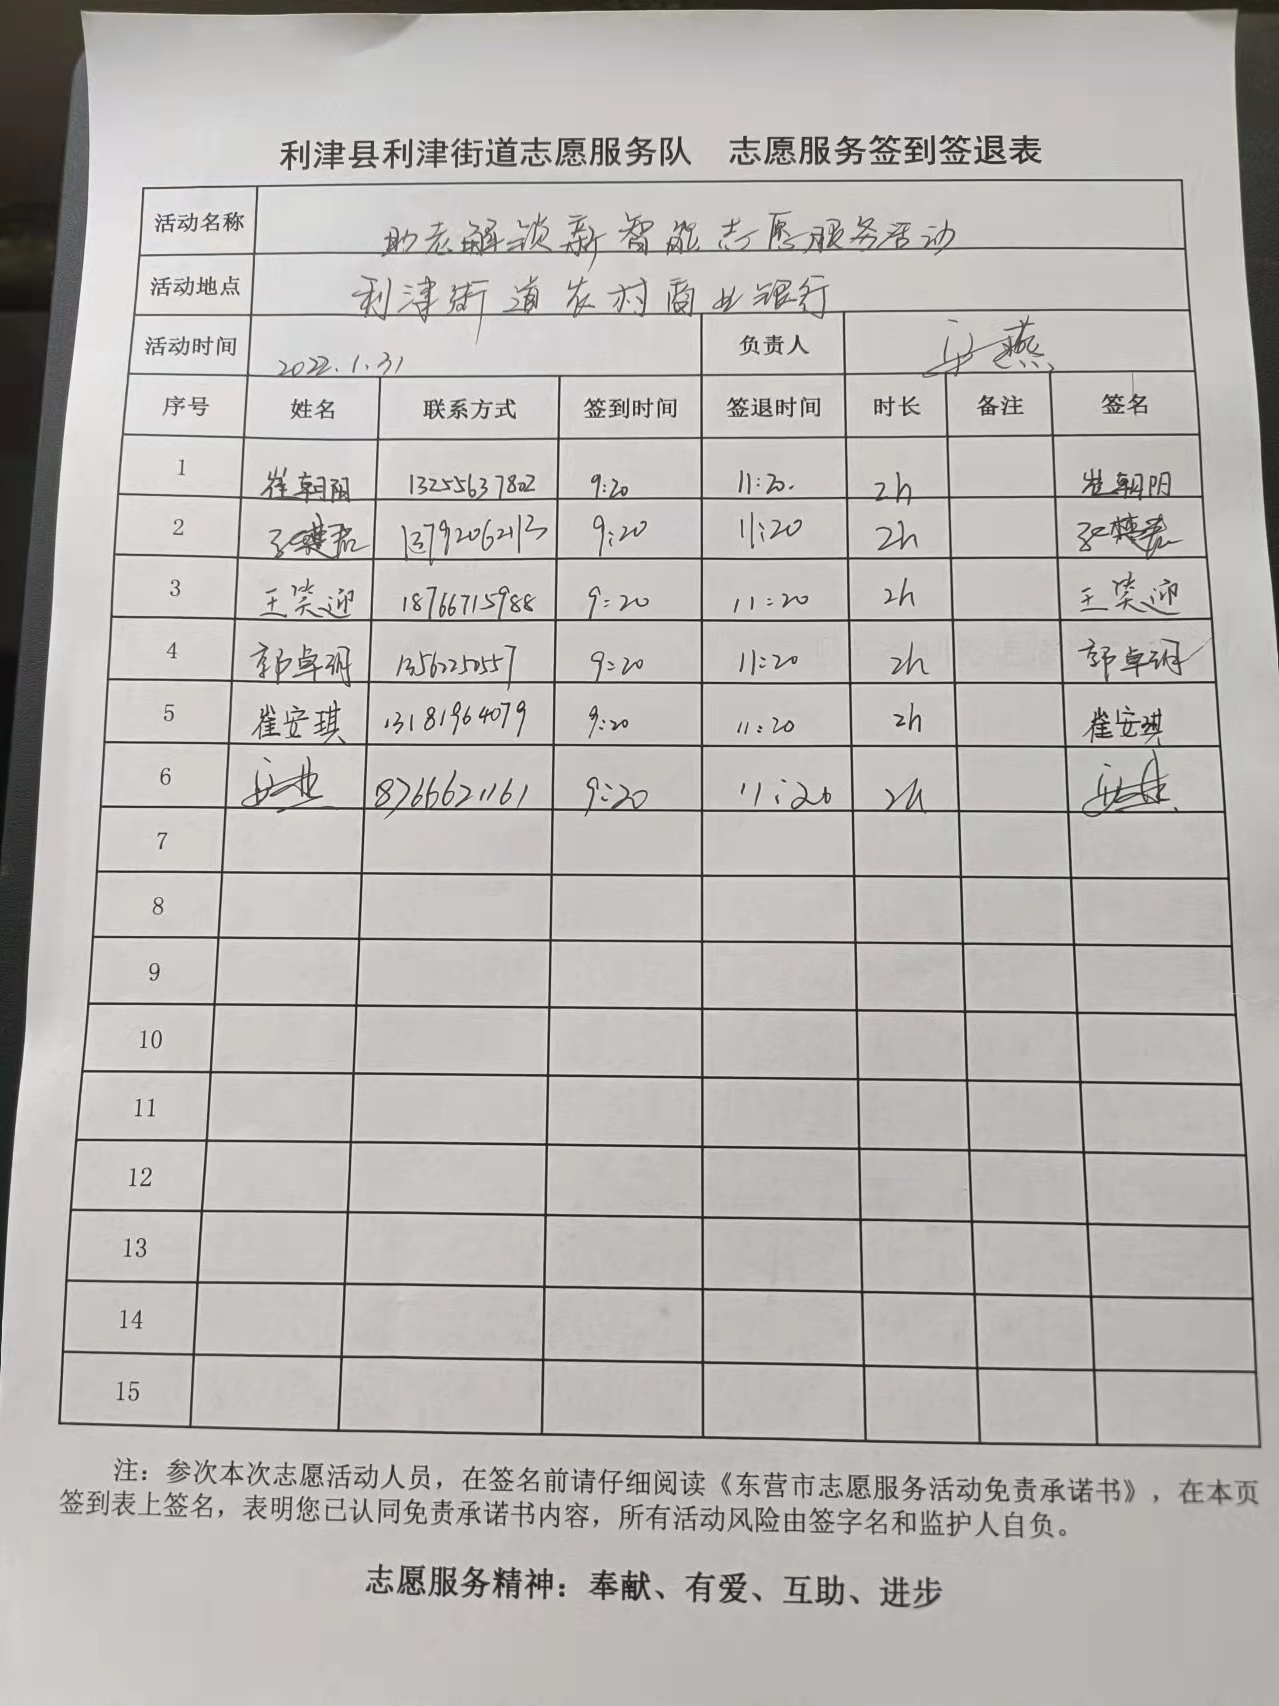 利津县利津街道志愿服务队 志愿服务签到签退表
活动名称 助老解锁新智能志愿服务活动
活动地点 利津街道农村商业银行
活动时间 2022.1.31 负责人 燕
序号 姓名 联系方式 签到时间 签退时间 时长 备注 签名
1 崔朝阳 13255637802 9:20 11:20. 2h 崔朝阳
2 9:20 11:20 2h
3 王笑迎 18766715988 9:20 11:20 2h 王笑迎
4 郭卓玥 13562250557 9:20 11:20 2h 郭卓玥
5 崔安琪 13181964079 9:20 11:20 2h 崔安琪
6 9:20 11:20 2h
7
8
9
10
11
12
13
14
15
注：参次本次志愿活动人员，在签名前请仔细阅读《东营市志愿服务活动免责承诺书》，在本页
签到表上签名，表明您已认同免责承诺书内容，所有活动风险由签字名和监护人自负。
志愿服务精神：奉献、有爱、互助、进步